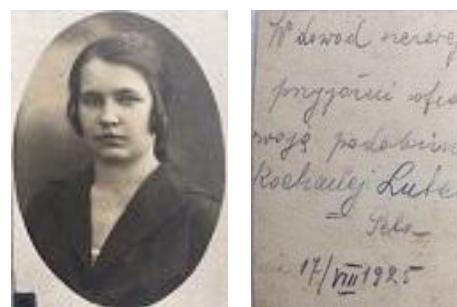 W dowód szczerej
przyjaźni ofia
swoją podobizn
Kochanej Lute
17/VIII 1925